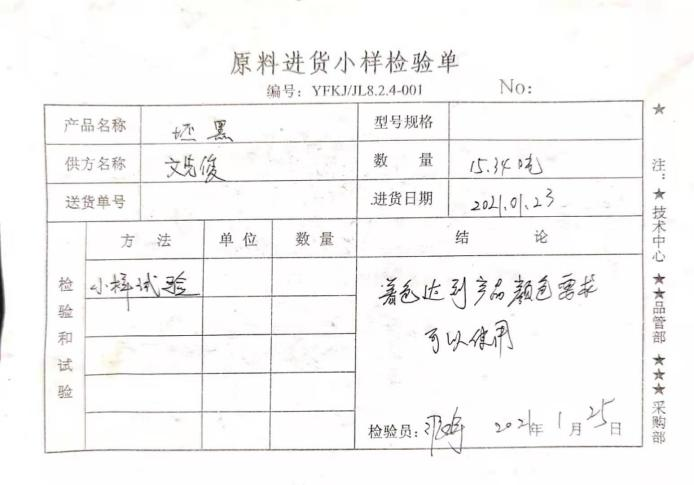 原料进货小样检验单
编号：YFKJ/JL8.2.4-001 No:
产品名称 坯黑 型号规格
供方名称 文先俊 数量 15.34吨
送货单号 进货日期 2021.01.23
检验和试验 方法 单位 数量 结论
小样试验
着色达到产品颜色需求
可以使用
检验员： 2021年1月25日
注：★技术中心 ★★品管部 ★★★采购部